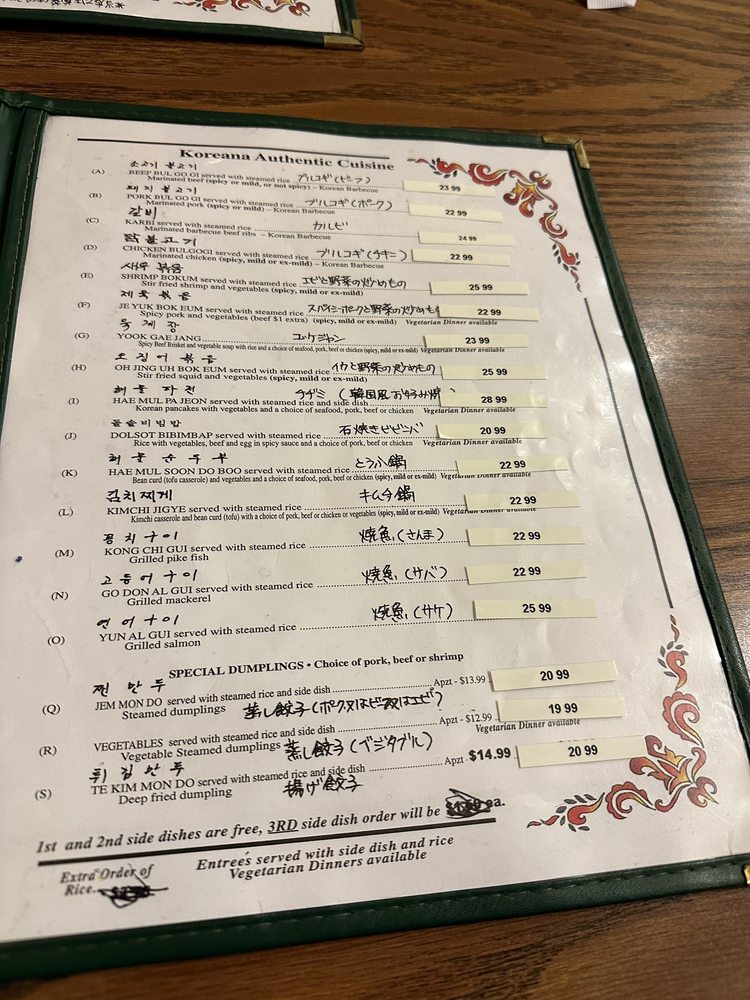 Koreana Authentic Cuisine
소고기 불고기
(A) BEEF BUL GO GI served with steamed rice ブルコギ(ビーフ) 23 99
Marinated beef (spicy or mild, or not spicy) – Korean Barbecue
돼지 불고기
(B) PORK BUL GO GI served with steamed rice ブルコギ(ポーク) 22 99
Marinated pork (spicy or mild) – Korean Barbecue
갈비
(C) KARBI served with steamed rice カルビ 24 99
Marinated barbecue beef ribs – Korean Barbecue
닭불고기
(D) CHICKEN BULGOGI served with steamed rice ブルコギ(チキン) 22 99
Marinated chicken (spicy, mild or ex-mild) – Korean Barbecue
새우 볶음
(E) SHRIMP BOKUM served with steamed rice エビと野菜の炒めもの 25 99
Stir fried shrimp and vegetables (spicy, mild or ex-mild)
제육볶음
(F) JE YUK BOK EUM served with steamed rice スパイシーポークと野菜の炒めもの 22 99
Spicy pork and vegetables (beef $1 extra) (spicy, mild or ex-mild) Vegetarian Dinner available
육계장
(G) YOOK GAE JANG ユッケジャン 23 99
Spicy Beef Brisket and vegetable soup with rice and a choice of seafood, pork, beef or chicken (spicy, mild or ex-mild) Vegetarian Dinner available
오징어 볶음
(H) OH JING UH BOK EUM served with steamed rice イカと野菜の炒めもの 25 99
Stir fried squid and vegetables (spicy, mild or ex-mild)
해물 파전
(I) HAE MUL PA JEON served with steamed rice and side dish チヂミ (韓国風お好み焼 28 99
Korean pancakes with vegetables and a choice of seafood, pork, beef or chicken Vegetarian Dinner available
돌솥비빔밥
(J) DOLSOT BIBIMBAP served with steamed rice 石焼きビビンバ 20 99
Rice with vegetables, beef and egg in spicy sauce and a choice of pork, beef or chicken Vegetarian Dinner available
해물순두부
(K) HAE MUL SOON DO BOO served with steamed rice とうふ鍋 22 99
Bean curd (tofu casserole) and vegetables and a choice of seafood, pork, beef or chicken (spicy, mild or ex-mild) Vegetarian Dinner available
김치찌게
(L) KIMCHI JIGYE served with steamed rice キムチ鍋 22 99
Kimchi casserole and bean curd (tofu) with a choice of pork, beef or chicken or vegetables (spicy, mild or ex-mild) Vegetarian Dinner available
꽁치구이
(M) KONG CHI GUI served with steamed rice 焼魚(さんま) 22 99
Grilled pike fish
고등어구이
(N) GO DON AL GUI served with steamed rice 焼魚(サバ) 22 99
Grilled mackerel
연어구이
(O) YUN AL GUI served with steamed rice 焼魚(サケ) 25 99
Grilled salmon
SPECIAL DUMPLINGS • Choice of pork, beef or shrimp
찐만두
(Q) JEM MON DO served with steamed rice and side dish Apzt - $13.99 20 99
Steamed dumplings 蒸し餃子(ポーク又はビーフ又はエビ)
(R) VEGETABLES served with steamed rice and side dish Apzt - $12.99 19 99
Vegetable Steamed dumplings 蒸し餃子(ベジタブル) Vegetarian Dinner available
튀김만두
(S) TE KIM MON DO served with steamed rice and side dish Apzt $14.99 20 99
Deep fried dumpling 揚げ餃子
1st and 2nd side dishes are free, 3RD side dish order will be ea.
Extra Order of Rice
Entreés served with side dish and rice
Vegetarian Dinners available